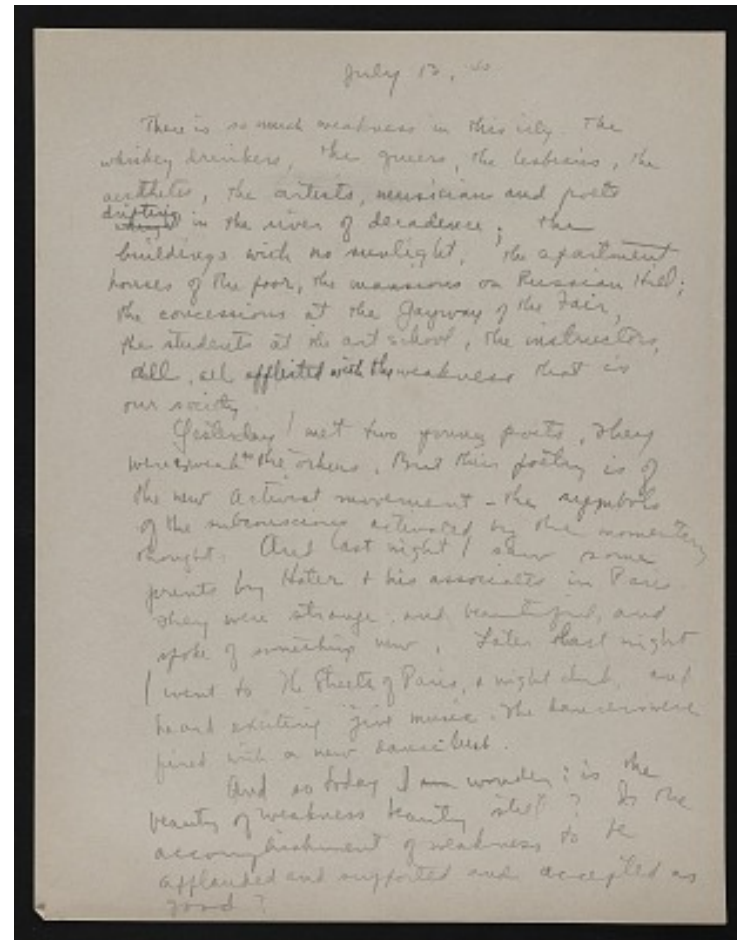 July 13, 40
There is so much weakness in this city. The
whiskey drinkers, the queers, the lesbians, the
aesthetes, the artists, musician and poets
drifting in the river of decadence; the
buildings with no sunlight, the apartment
houses of the poor, the mansions on Russian Hill;
the concessions at the Gayway of the Fair,
the students at the art school, the instructors,
all, all afflicted with the weakness that is
our society.
Yesterday I met two young poets, they
were weak as the others. But their poetry is of
the new Activist movement - the symbols
of the subconscious activated by the momentary
thought. And last night I saw some
prints by Hater & his associates in Paris
They were strange and beautiful, and
spoke of something new. Later last night
I went to the Streets of Paris, a night club, and
heard exciting jive music. The dancers were
fired with a new dance
And so today I wonder: is the
beauty of weakness beauty still? Is the
accomplishment of weakness to be
applauded and supported and accepted as
good?